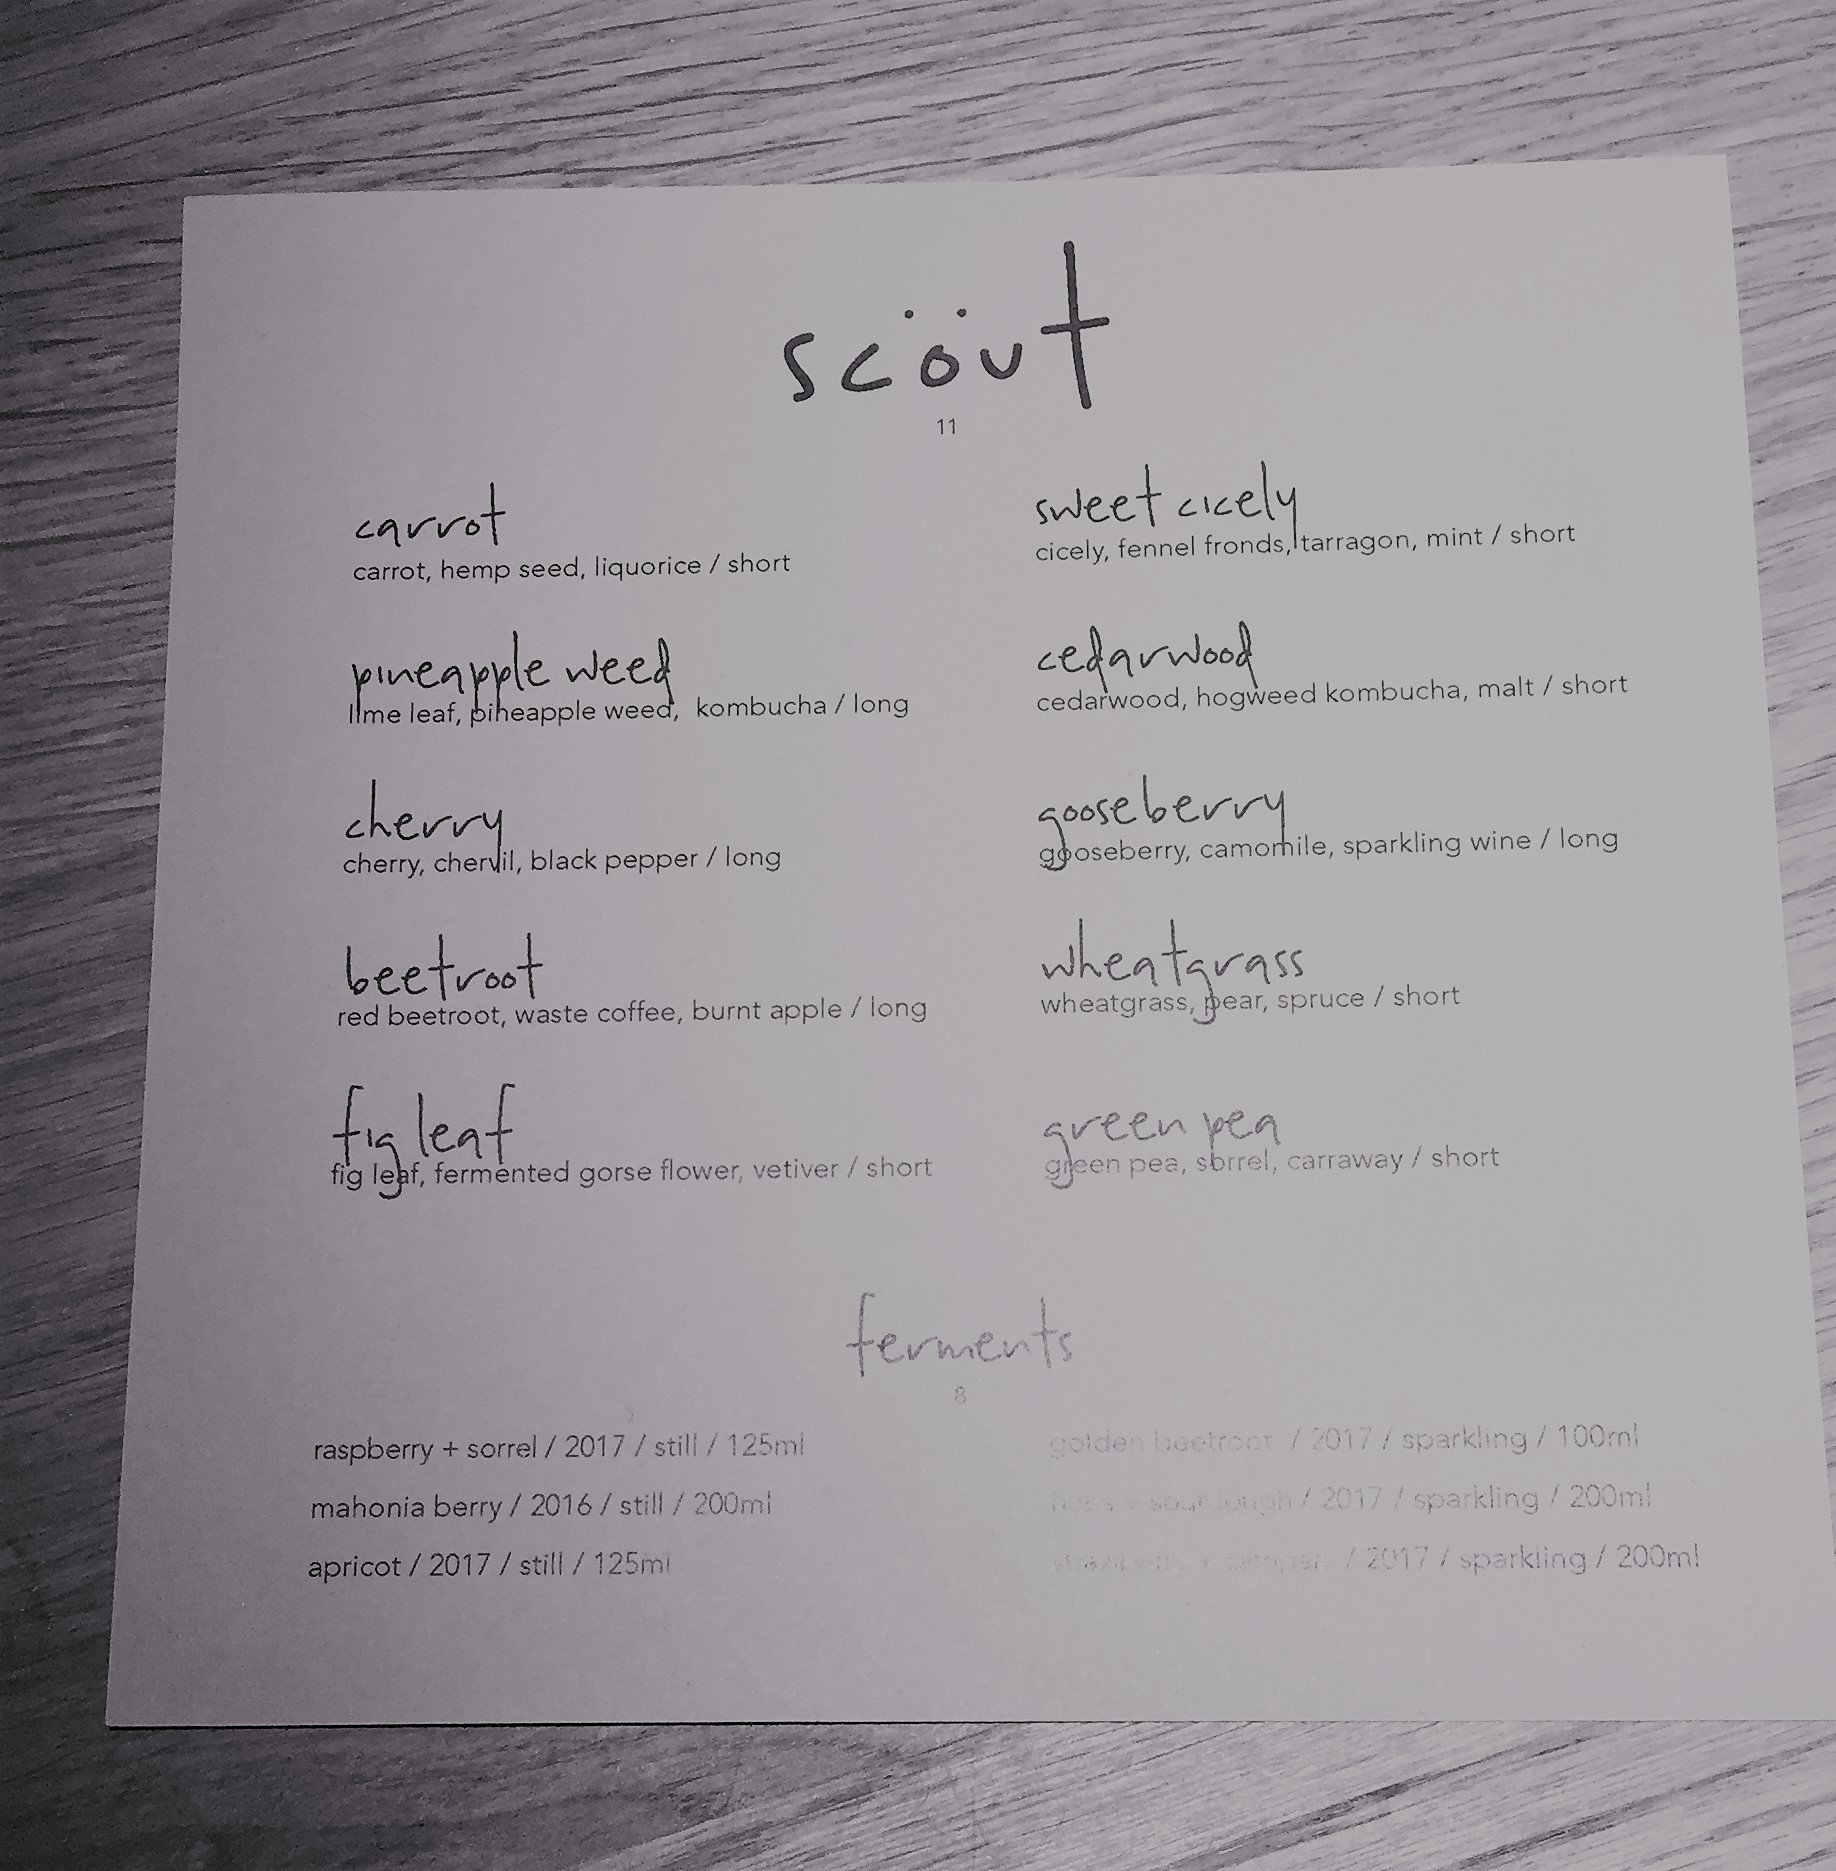 scöut
11
carrot
carrot, hemp seed, liquorice / short
pineapple weed
lime leaf, pineapple weed, kombucha / long
cherry
cherry, chervil, black pepper / long
beetroot
red beetroot, waste coffee, burnt apple / long
fig leaf
fig leaf, fermented gorse flower, vetiver / short
sweet cicely
cicely, fennel fronds, tarragon, mint / short
cedarwood
cedarwood, hogweed kombucha, malt / short
gooseberry
gooseberry, camomile, sparkling wine / long
wheatgrass
wheatgrass, pear, spruce / short
green pea
green pea, sorrel, carraway / short
ferments
8
raspberry + sorrel / 2017 / still / 125ml
mahonia berry / 2016 / still / 200ml
apricot / 2017 / still / 125ml
golden beetroot / 2017 / sparkling / 100ml
+ sourdough / 2017 / sparkling / 200ml
/ 2017 / sparkling / 200ml